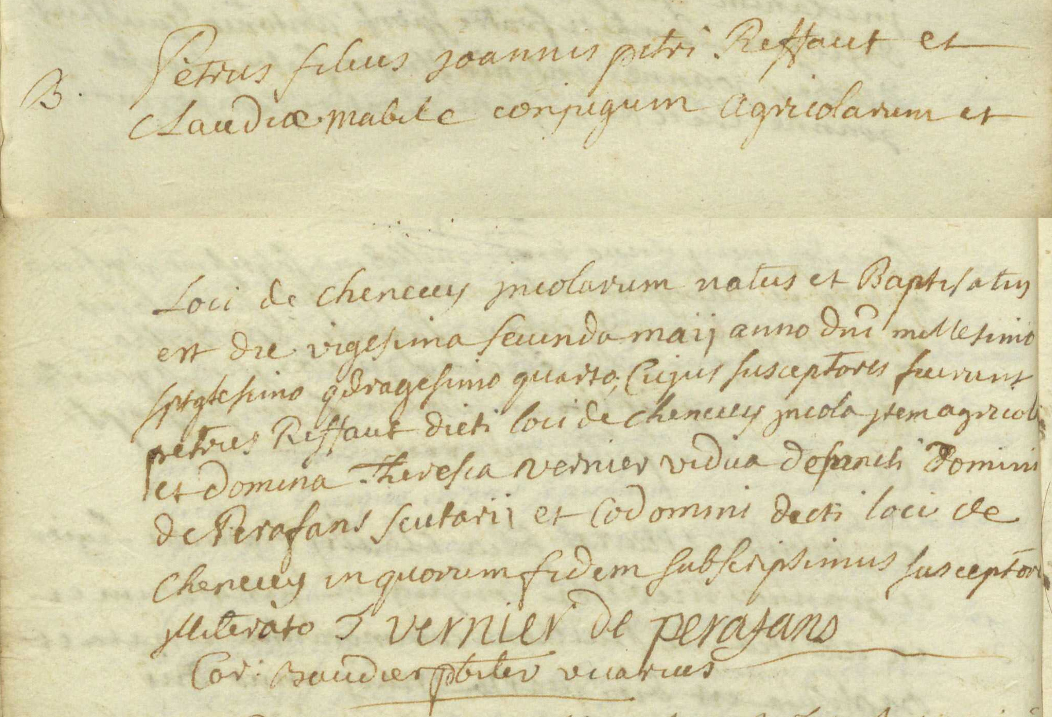 B.
Petrus filius joannis petri Reffaut et
Claudiæ mabile conjugum agricolarum et
Loci de chenecey jncolarum natus et Baptisatus
est die vigesima secunda maij anno dni millesimo
sptgtesimo qdragesimo quarto, Cujus susceptores fuerunt
petrus Reffaut dicti loci de chenecey jncola jtem agricol
et domina Theresia vernier vidua defuncti Domini
de Perafans scutarij et Codomini dicti loci de
chenecey in quorum fidem subscripsimus susceptore
jlliterato T vernier de perafans
Baudier pbiter vicarius